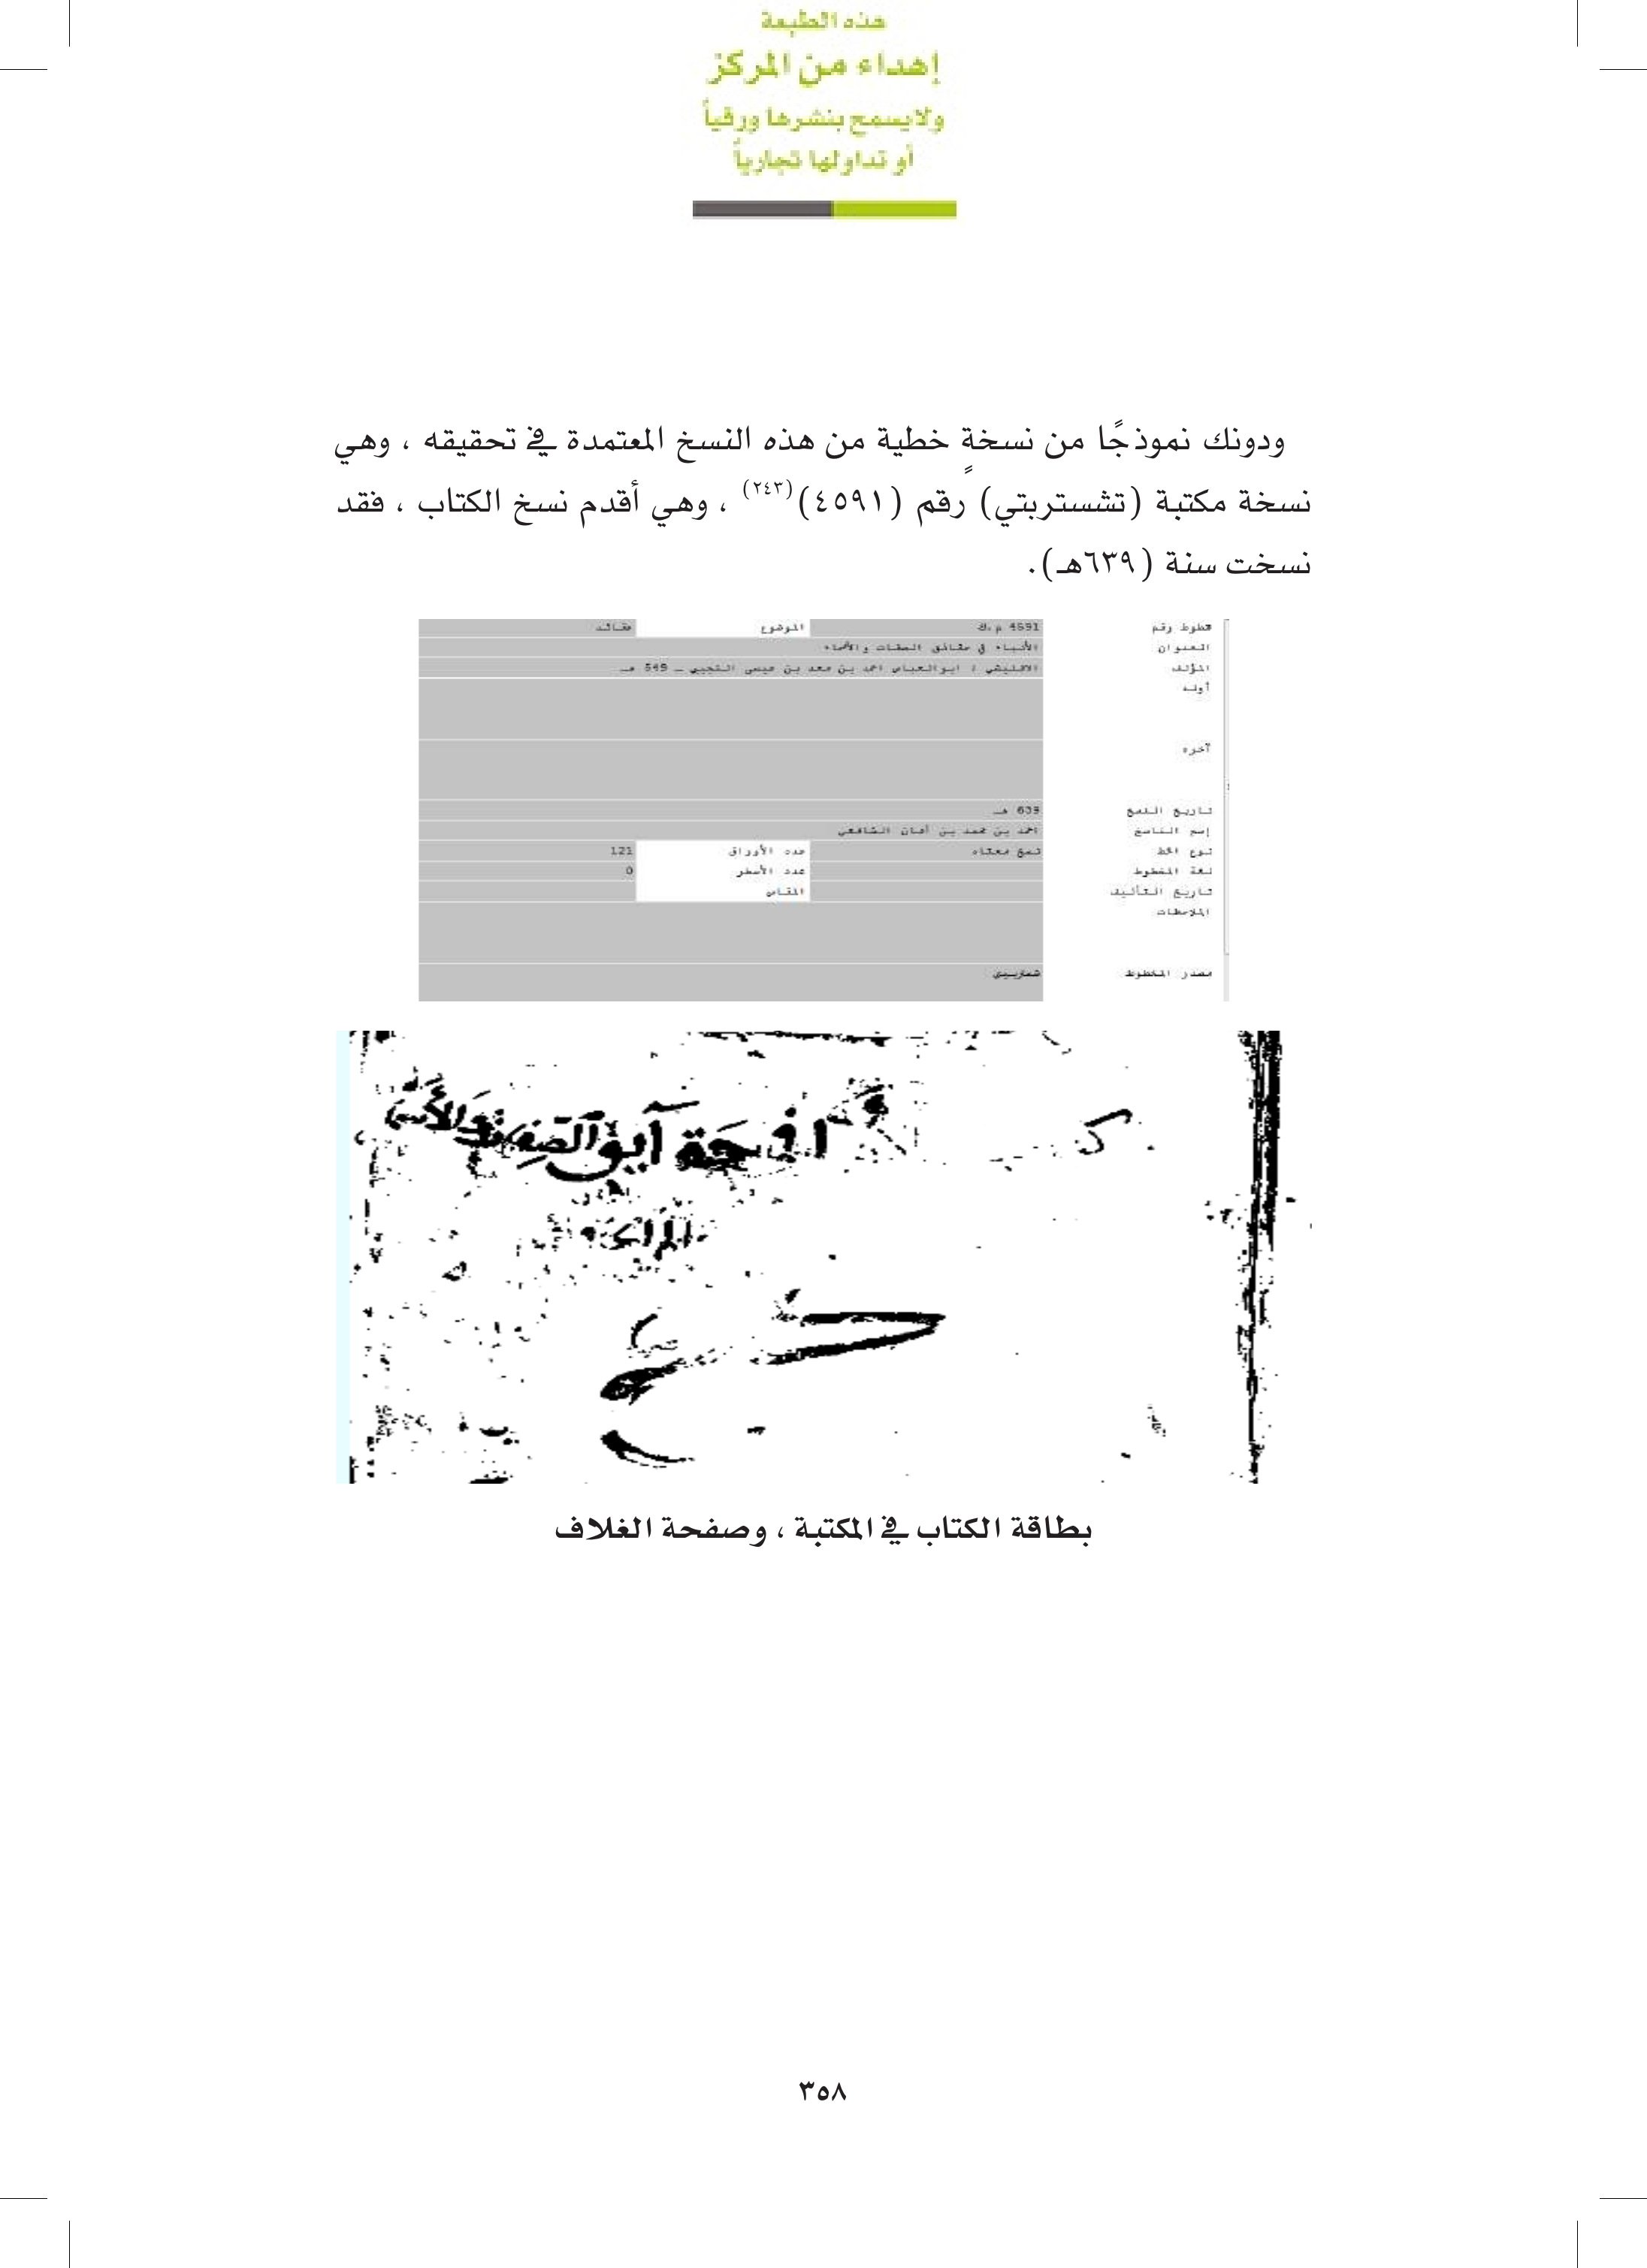 هذه الطبعة
إهداء من المركز
ولايسمح بنشرها ورقياً
أو تداولها تجارياً
ودونك نموذجًا من نسخةٍ خطية من هذه النسخ المعتمدة في تحقيقه ، وهي
نسخة مكتبة (تشستربتي) رقم (٤٥٩١)(٢٤٣) ، وهي أقدم نسخ الكتاب ، فقد
نسخت سنة (٦٣٩هـ).
مخطوط رقم 4591 م.ك الموضوع عقائد
العنوان الأنباء في حقائق الصفات والأسماء
المؤلف الاقليشي ؛ ابوالعباس احمد بن معد بن عيسى التجيبي ـ 549 هـ
أوله
آخره
تاريخ النسخ 639 هـ
إسم الناسخ احمد بن محمد بن الشافعي
نوع الخط نسخ معتاد عدد الأوراق 121
لغة المخطوط عدد الأسطر 0
تاريخ التأليف المقاس
الملاحظات
مصدر المخطوط
بطاقة الكتاب في المكتبة ، وصفحة الغلاف
٣٥٨